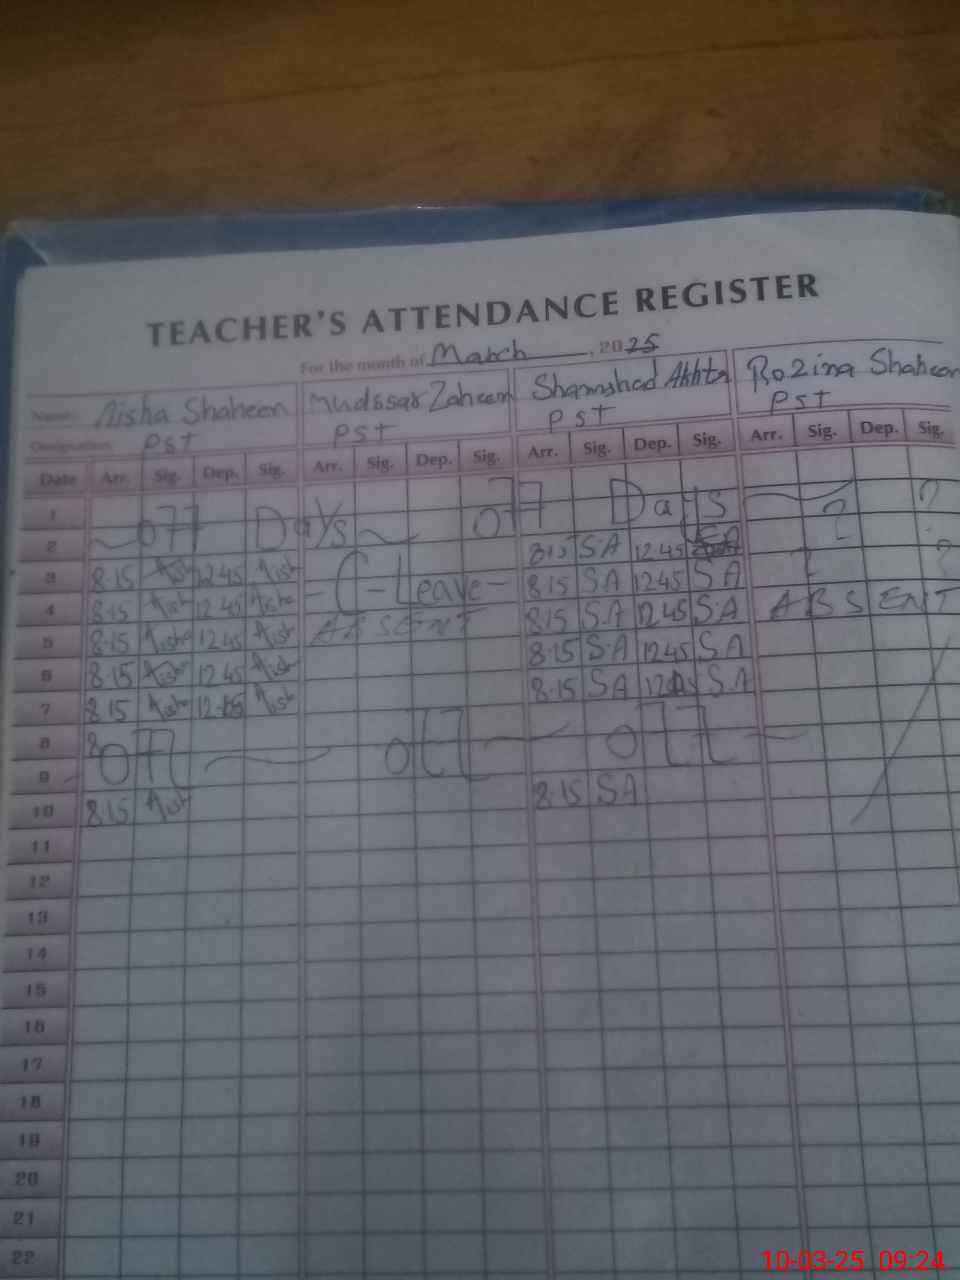 TEACHER'S ATTENDANCE REGISTER
For the month of March, 2025
Name Aisha Shaheen Mudssar Zaheen Shamshad Akhta Rozina Shaheen
Designation PST PST PST PST
Date Arr. Sig. Dep. Sig. Arr. Sig. Dep. Sig. Arr. Sig. Dep. Sig. Arr. Sig. Dep. Sig.
1 off Days off Days ? ?
2
8:15 S.A 12.45 SA
3 8.15 Aish 12.45 Aish C-Leave 8:15 SA 12.45 S A ?
4 8.15 Aish 12.45 Aisha ABSENT 8.15 S.A 12.45 S.A ABSENT
5 8.15 Aisha 12.45 Aish 8.15 S.A 12.45 S A
6 8.15 Aish 12.45 Aish 8.15 SA S.A
7 8.15 Aish Aish
8 off off off
9
10 8.15 Aish 8.15 SA
11
12
13
14
15
16
17
18
19
20
21
22
10-03-25 09:24